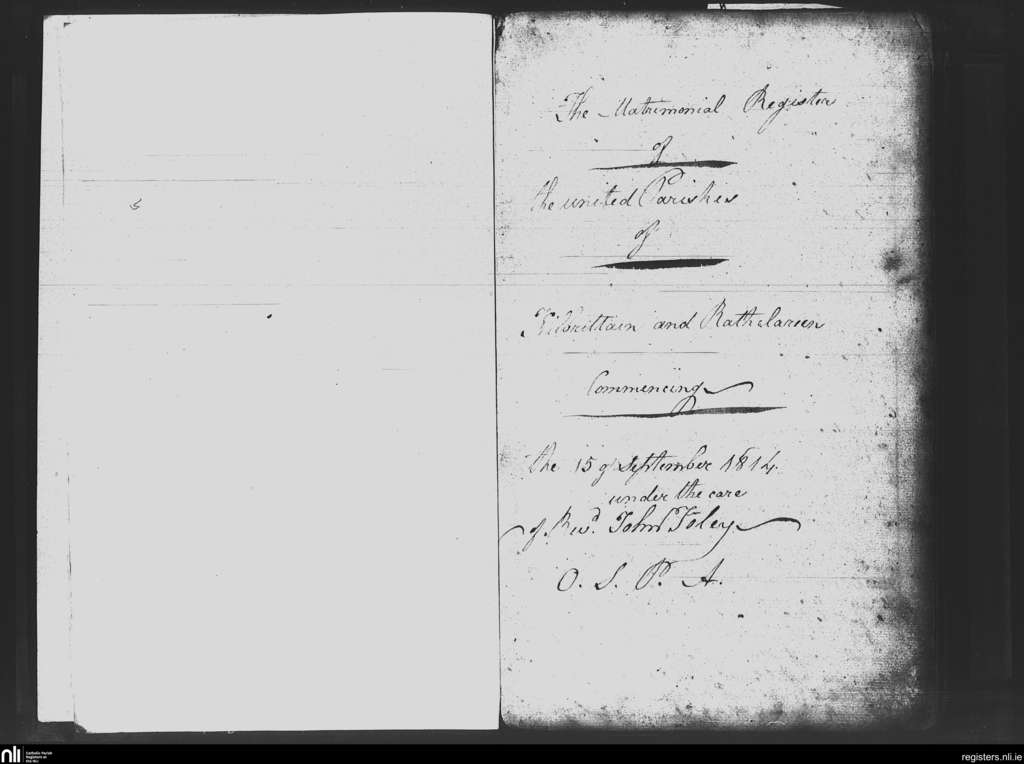 The Matrimonial Register
of
the united Parishes
of
Kilbrittain and Rathclareen
Commencing
the 15 of September 1814.
under the care
of Revd. John Foley
O. S. P. A.
nli
Catholic Parish
Registers at
the NLI
registers.nli.ie